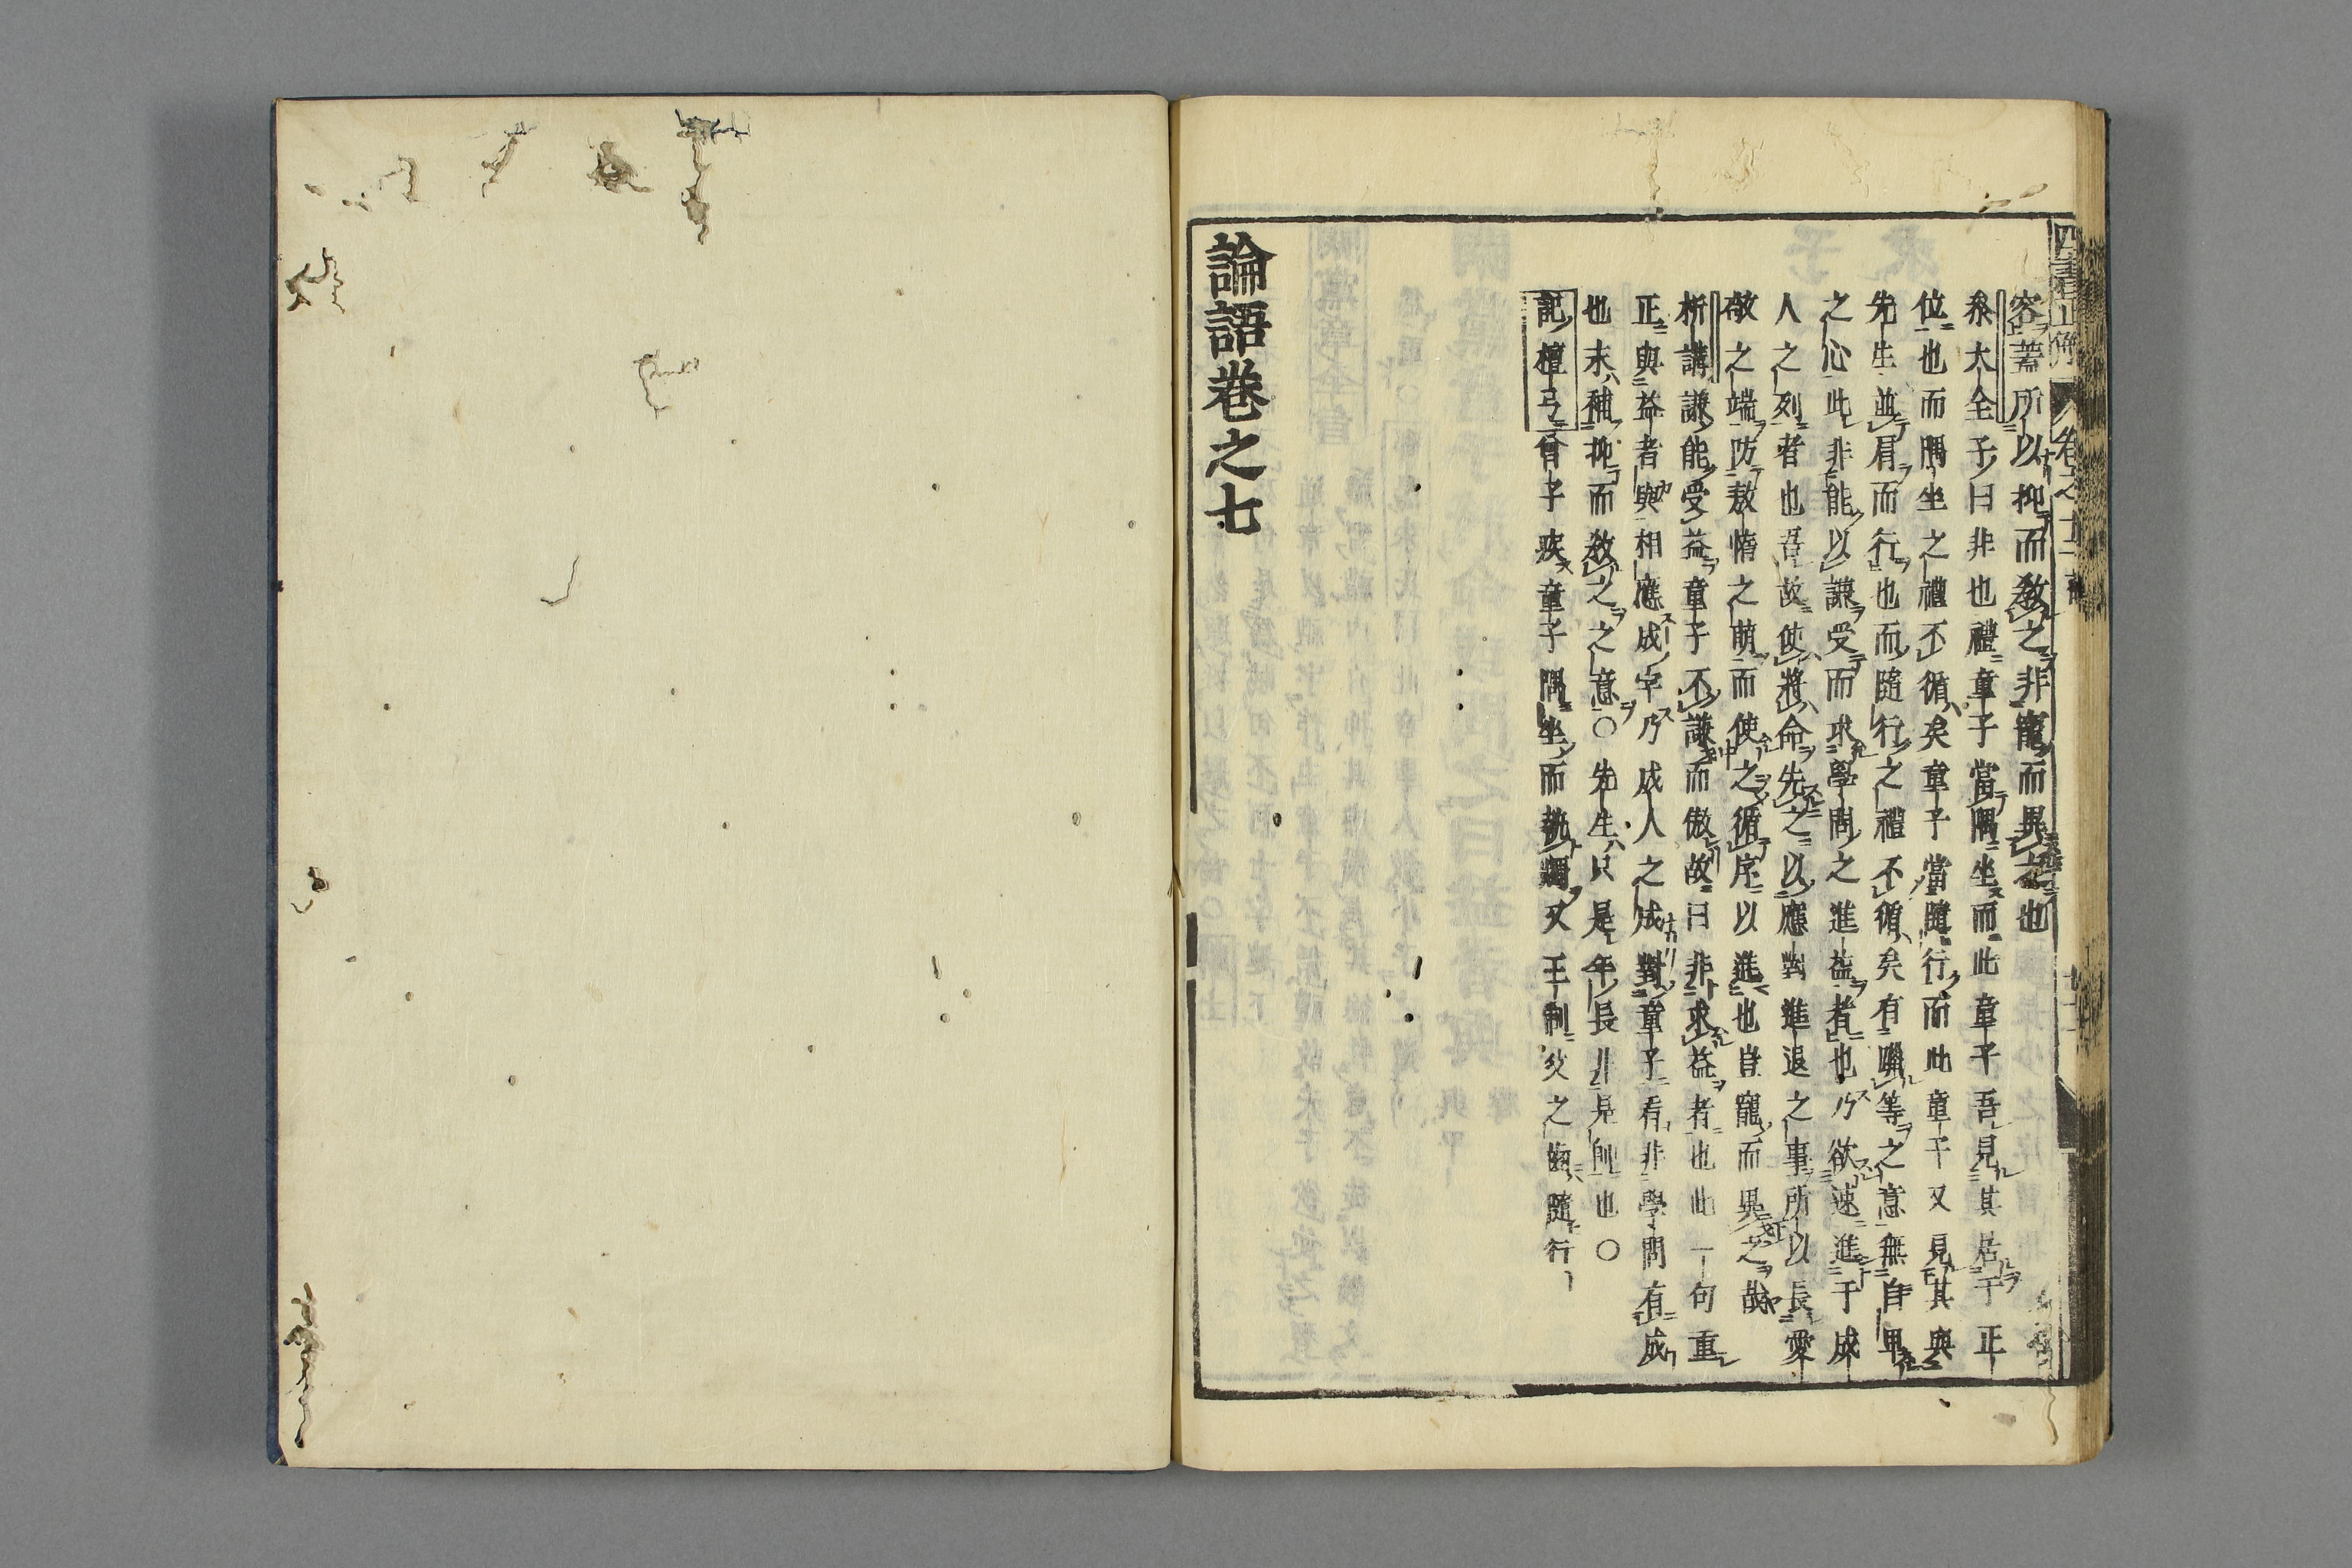 容蓋所以抑而教之非寵而異之也
桼大全子曰非也禮童子當隅坐而此童子吾見其居于正
位也而隅坐之禮不循矣童子當隨行而此童子又見其與
先生並肩而行也而隨行之禮不循矣有躐等之意無自卑
之心此非能以謙受而求學問之進益者也乃欲速進于成
人之列者也吾故使將命先之以應對進退之事所以長愛
敬之端防敖惰之萌而使之循序以進也豈寵而異之哉
析講謙能受益童子不謙而傲故曰非求益者也此一句重
正與益者與相應成字乃成人之成對童子看非學問有成
也末補抑而教之之意○先生只是年長非是師也○
記檀弓曾子疾童子隅坐而執燭又王制父之齒隨行
論語卷之七